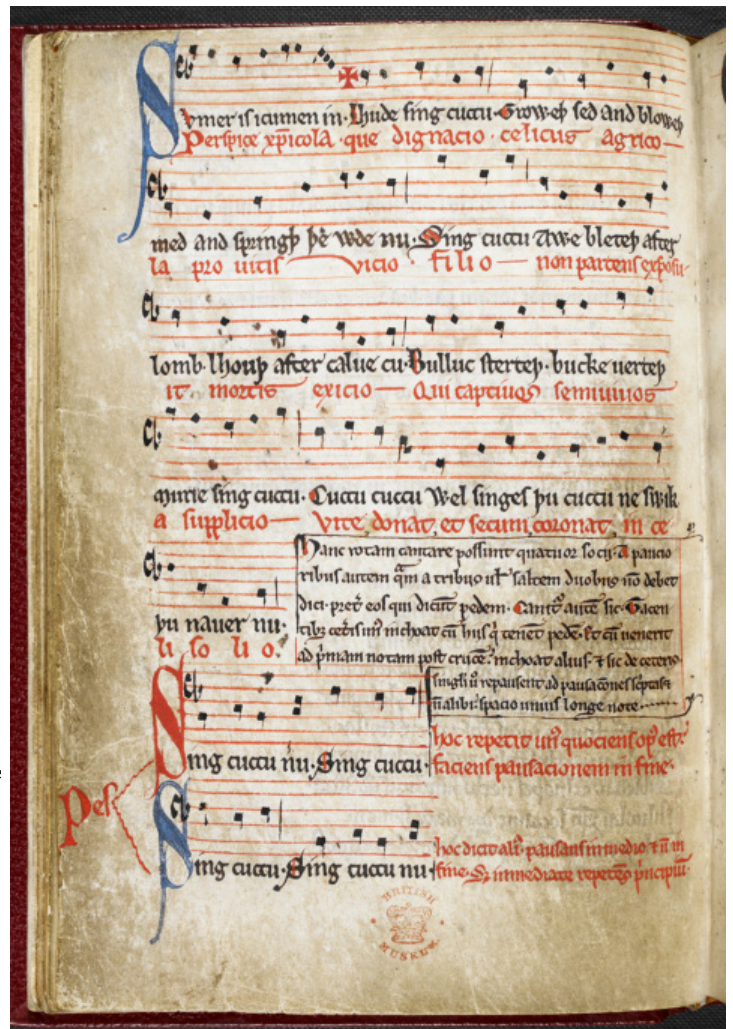 Symer is icumen in. Lhude sing cuccu. Groweþ sed and bloweþ
Perspice xp̄icola que dignacio celicus agrico
med and springþ þe wde nu. Sing cuccu Awe bleteþ after
la pro uitis vicio filio non parcens exposu
lomb. lhouþ after calue cu. Bulluc sterteþ. bucke uerteþ
it mortis exicio Qui captiuos semiuiuos
murie sing cuccu. Cuccu cuccu Wel singes þu cuccu ne swik
a supplicio vite donat et secum coronat in ce
þu nauer nu.
li solio.
Hanc rotam cantare possunt quatuor socii. A paucio
ribus autem q̄m a tribus uł saltem duobus nō debet
dici. pret̄ eos qui dicūt pedem. Canit᷑ autē sic. Tacen
tibȝ cet̄is unꝰ inchoat cū hiis q̇ tenēt pedē. Et cū venerit
ad p̄mam notam post crucē. inchoat alius. ⁊ sic de ceteris
singli ū repausent ad pausac̄ones sc̄ptas ⁊
n̄ alibi. spacio unius longe note
Sing cuccu nu. Sing cuccu.
hoc repetit unꝰ quociens opꝰ est.
faciens pausacionem in fine.
Pes
Sing cuccu. Sing cuccu nu
hoc dicit aliꝰ. pausans in medio ⁊ n̄ in
fine. Sꝫ inmediate repetēs p̄ncipiū.
BRITISH
MUSEUM